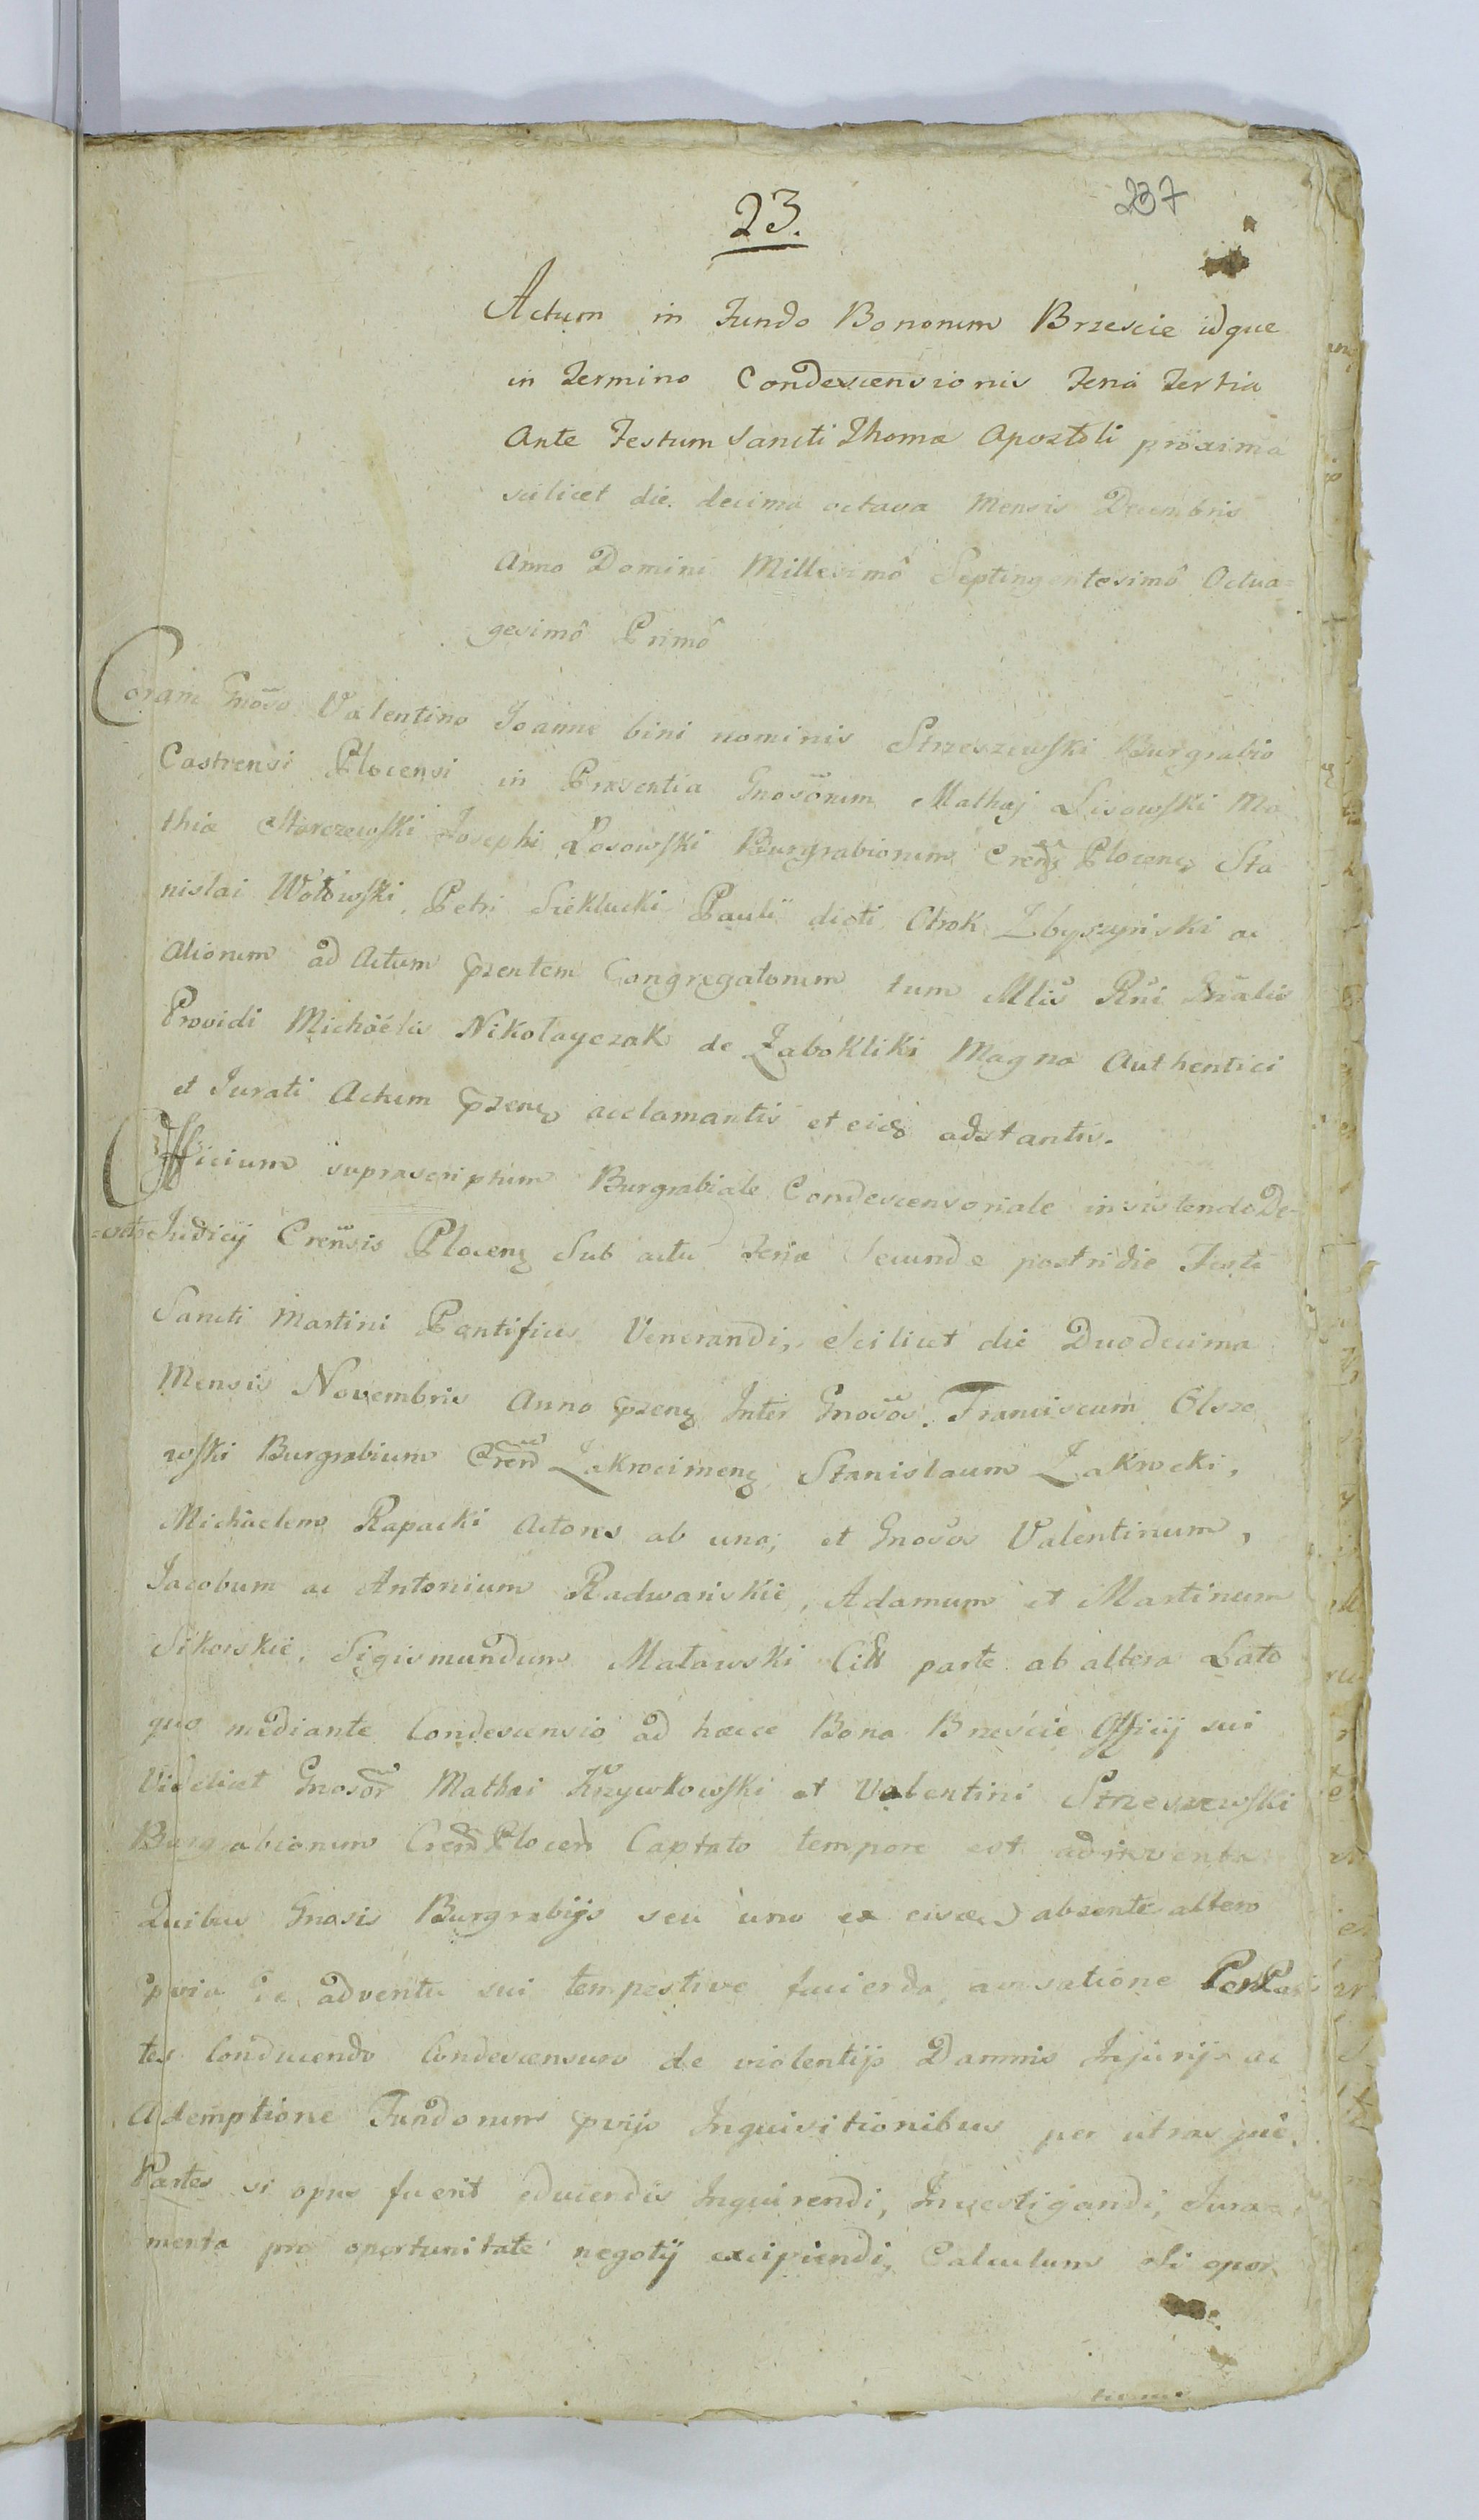 237
23.
Actum in Fundo Bonorum Brzescie idque
in Termino Condescensionis Feria Tertia
Ante Festum Sancti Thomæ Apostoli proxima
scilicet die decima octava Mensis Decembris
Anno Domini Millesimô Septingentesimô Octua=
gesimô Primô
Coram Gnoso Valentino Joanne bini nominis Strzeszewski Burgrabio
Castrensi Plocensi in Præsentia Gnosorum Mathæj Lisowski Ma
thiæ Marczewski Josephi Rosowski Burgrabiorum Crens Plocens Sta
nislai Wołowski, Petri Sieklucki Pauli dicti Otrok Zbyszyński ac
aliorum ad Actum przentem Congregatorum tum Mlis Rni Gnalis
Providi Michäelis Nikołayczak de Zabokliki Magna Authentici
et Jurati Actum przens acclamantis et eid adstantis.
Officium suprascriptum Burgrabiale Condescensoriale insistendo De-
=creto Judicij Crensis Plocens Sub actu Feriæ Secundæ postridie Festi
Sancti Martini Pontificis Venerandi, Scilicet die Duodecima
Mensis Novembris Anno przens Inter Gnosos Franciscum Olsze
wski Burgrabium Cren Zakrocimens Stanislaum Zakrocki,
Michäelem Rapacki Actores ab una, et Gnosos Valentinum,
Jacobum ac Antonium Radwańskie, Adamum et Martinum
Sikorskie, Sigismundum Maławski Citt parte ab altera Lato
quo mediante Condescensio ad hæcce Bona Brzeście Officij sui
Videlicet Gnosor Mathæi Krzywkowski et Valentini Strzeszewski
Burgrabiorum Cren Plocen Captato tempore est adinventa
Quibus Gnosis Burgrabijs seu uno ex eisd absente altero
prvia de adventu sui tempestive facienda avisatione Per Par
tes Conducendo Condescensuro de violentijs Damnis Injurijs ac
Ademptione Fundorum prvijs Inquisitionibus per utrasque
Partes si opus fuerit educendis Inquirendi, Investigandi, Jura=
menta pro oportunitate negotij excipiendi, Calculum Si opor